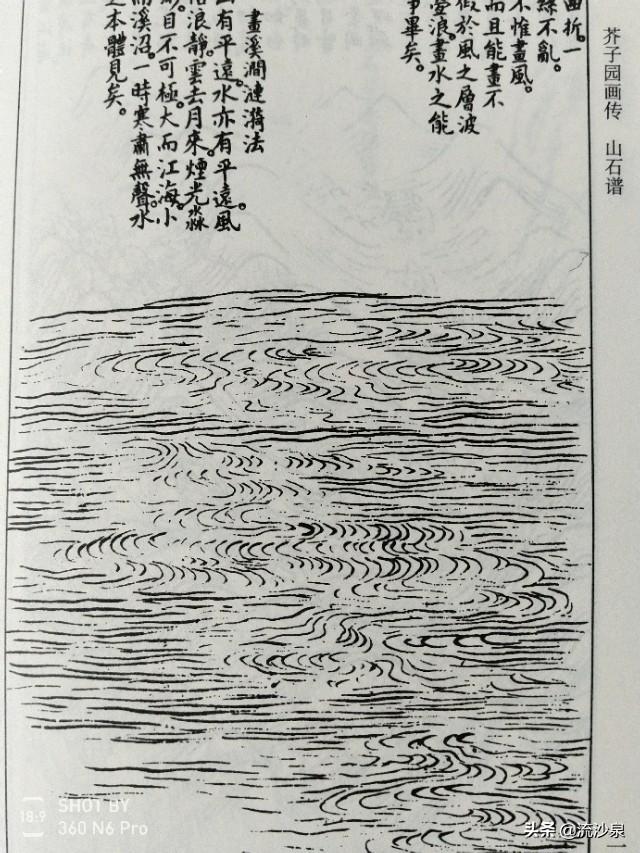 芥子园画传 山石谱
曲折。一
絲不亂。
不惟畫風。
而且能畫不
風之層波
浪畫水之能
事畢矣。
畫溪澗漣漪法
有平遠。水亦有平遠。風
恬浪靜雲去月來。煙光淼
目不可極。大而江海。小
而溪沼。一時寒肅無聲。水
之本體見矣。
一
18:9
SHOT BY
360 N6 Pro
头条 @流沙泉